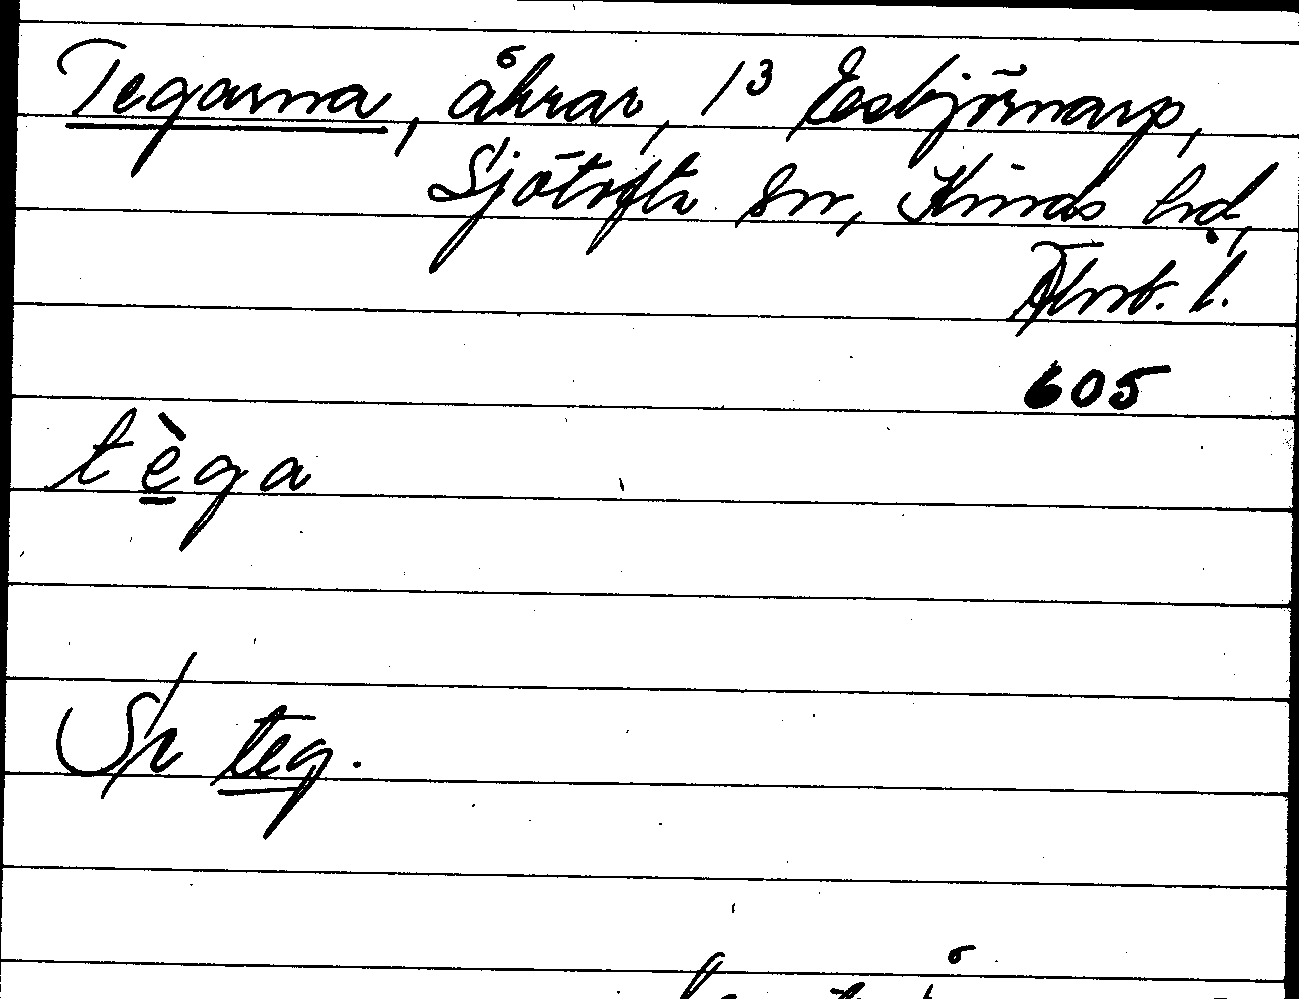 Tegarna, åkrar, 1³ Esbjörnarp,
Sjötofta sn, Kinds hd,
Älvsb. l.
605
tèga
Sp teg.